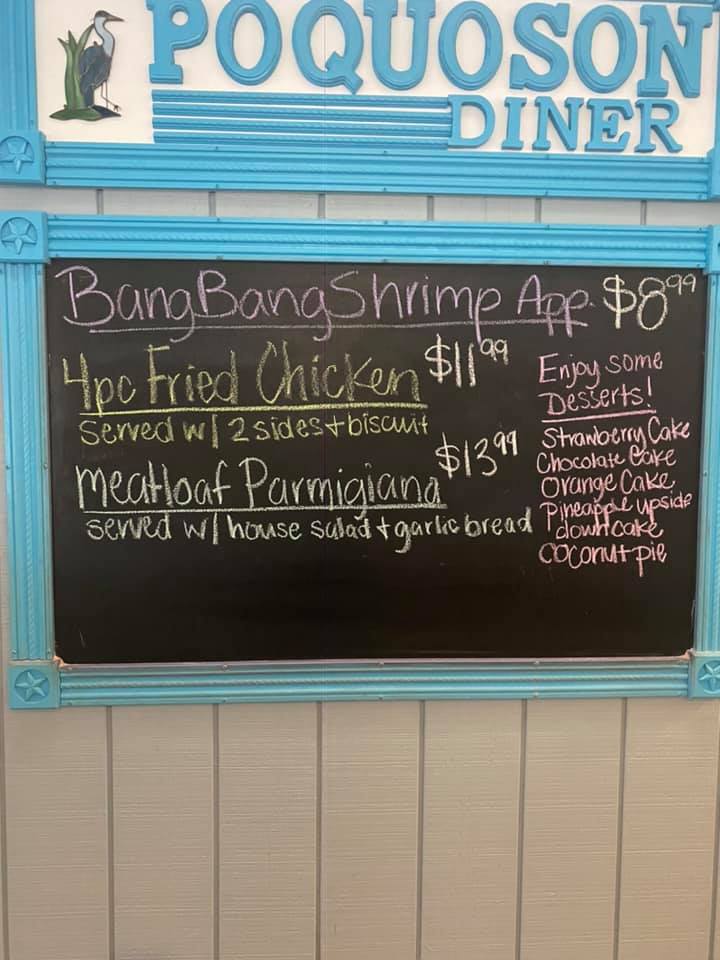 POQUOSON
DINER
BangBangShrimp App. $8.99
4pc Fried Chicken $11.99
served w/ 2 sides + biscuit
meatloaf Parmigiana $13.99
served w/ house salad + garlic bread
Enjoy some
Desserts!
Strawberry Cake
Chocolate Cake
Orange Cake
Pineapple upside
down cake
coconut pie